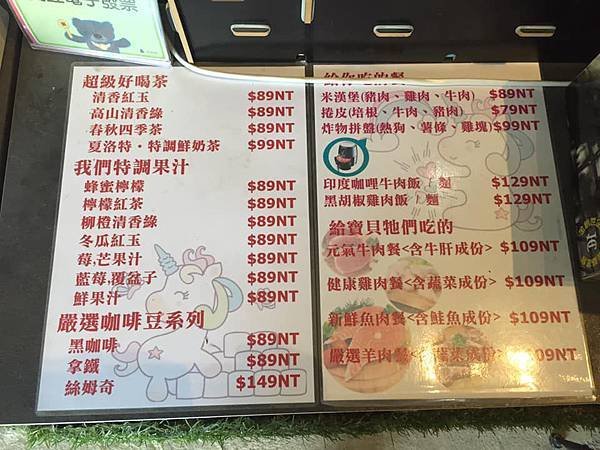 電子發票
超級好喝茶
清香紅玉 $89NT
高山清香綠 $89NT
春秋四季茶 $89NT
夏洛特・特調鮮奶茶 $99NT
我們特調果汁
蜂蜜檸檬 $89NT
檸檬紅茶 $89NT
柳橙清香綠 $89NT
冬瓜紅玉 $89NT
莓,芒果汁 $89NT
藍莓,覆盆子 $89NT
鮮果汁 $89NT
嚴選咖啡豆系列
黑咖啡 $89NT
拿鐵 $89NT
絲姆奇 $149NT
給你吃的餐
米漢堡(豬肉、雞肉、牛肉) $89NT
捲皮(培根、牛肉、豬肉) $79NT
炸物拼盤(熱狗、薯條、雞塊) $99NT
印度咖哩牛肉飯/麵 $129NT
黑胡椒雞肉飯/麵 $129NT
給寶貝牠們吃的
元氣牛肉餐<含牛肝成份> $109NT
健康雞肉餐<含蔬菜成份> $109NT
新鮮魚肉餐<含鮭魚成份> $109NT
嚴選羊肉餐<含蔬菜成份> $109NT